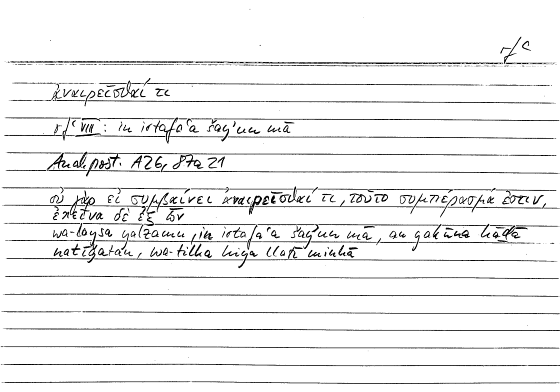 rfʿ
ἀναιρεῖσθαί τι
rfʿ VIII : in irtafaʿa šayʾun mā
Anal. post. A 26, 87a21
οὐ γὰρ εἰ συμβαίνει ἀναιρεῖσθαί τι, τοῦτο συμπέρασμά ἐστιν,
ἐκεῖνα δὲ ἐξ ὧν
wa-laysa yalzamu, in irtafaʿa šayʾun mā, an yakūna hāḏā
natīǧatan, wa-tilka hiya llatī minhā